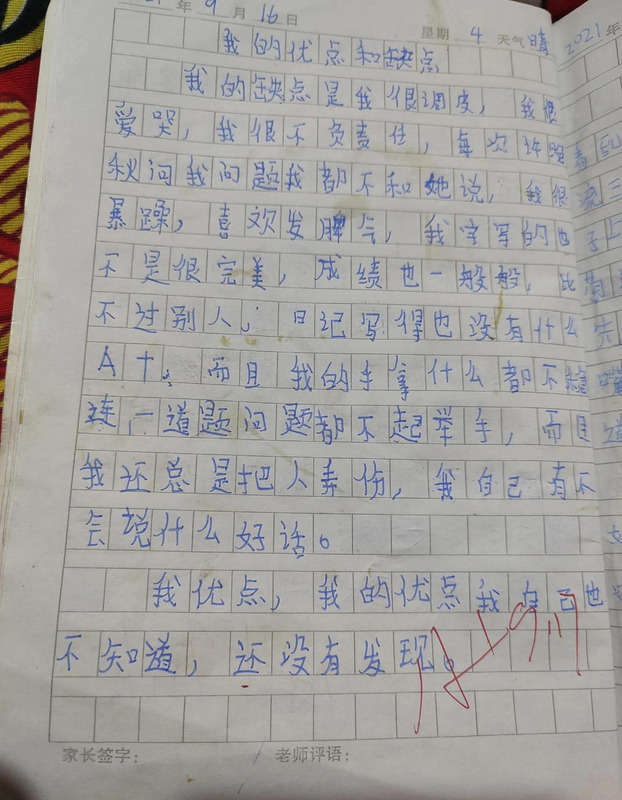 年9月16日 星期4 天气晴 2021年
我的优点和缺点
我的缺点是我很调皮，我很
爱哭，我很不负责任，每次许晚
秋问我问题我都不和她说，我很
暴躁，喜欢发脾气，我字写的也
不是很完美，成绩也一般般，比
不过别人，日记写得也没有什么
A+。而且我的手拿什么都不稳
连一道题问题都不起举手，而且
我还总是把人弄伤，我自己有不
会说什么好话。
我优点，我的优点我自己也
不知道，还没有发现。
A 9.17
家长签字： 老师评语：